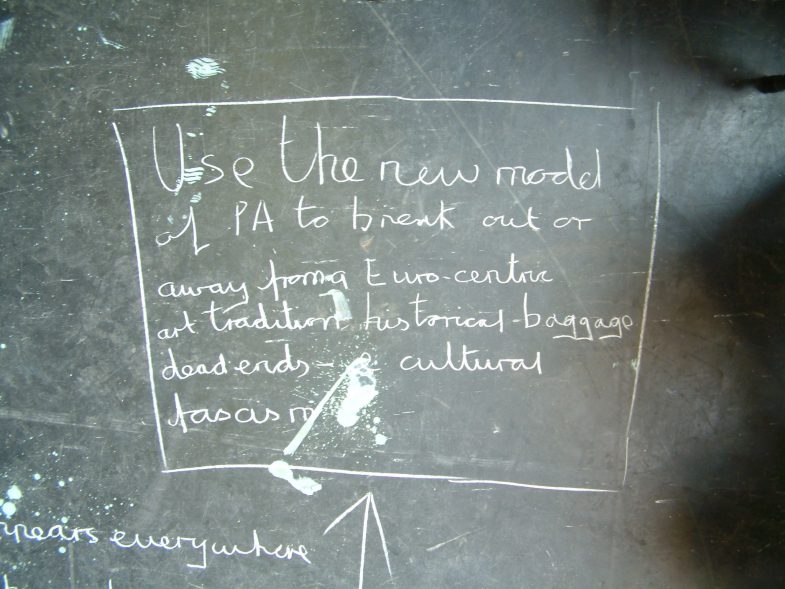 Use the new model
of PA to break out or
away from a Euro-centric
art tradition historical-baggage
dead ends- & cultural
fascism
everywhere